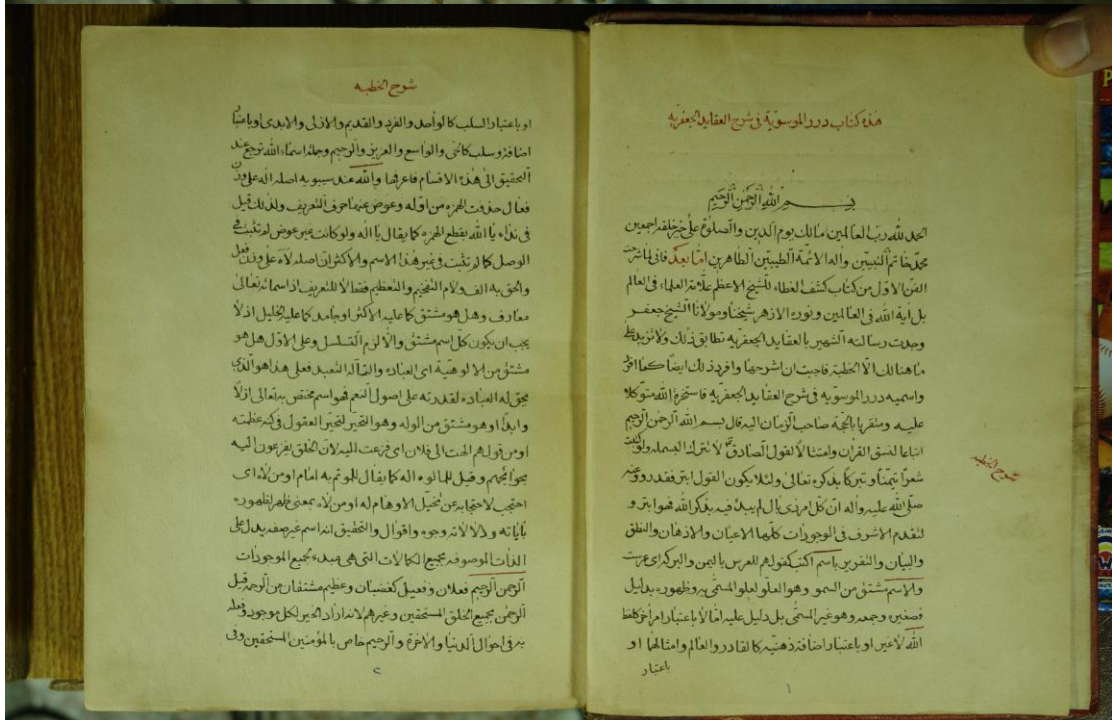 هذه كتاب درر الموسوية في شرح العقايد الجعفريه
بسم الله الرحمن الرحيم
الحمد لله رب العالمين مالك يوم الدين والصلوة على خير خلقه اجمعين
محمد خاتم النبيين واله الائمة الطيبين الطاهرين اما بعد فاني لما شرحت
الفن الاول من كتاب كشف الغطاء للشيخ الاعظم علامة العلماء في العالم
بل اية الله في العالمين ونوره الازهر شيخنا ومولانا الشيخ جعفر
وجدت رسالته الشهير بالعقايد الجعفريه تطابق ذلك ولا تزيد على
ما هنالك الا الخطبة فاجبت ان اشرحها وافرد ذلك ايضا كما افرد
واسميه درر الموسويه في شرح العقايد الجعفريه فاستخرت الله متوكلا
عليه ومتقربا بالحجة صاحب الزمان اليه قال بسم الله الرحمن الرحيم
اتباعا لنسق القران وامتثالا لقول الصادق ع لا تترك البسمله ولو كتبت
شعرا تيمنا وتبركا بذكره تعالى ولئلا يكون القول ابتر فقد روو عنه
صلى الله عليه واله ان كل امر ذي بال لم يبدء فيه بذكر الله فهو ابتر و
لتقدم الاشرف في الوجودات كلها الاعيان والاذهان والنطق
والبيان والتقرير باسم اكتب كقولهم للعرس باليمن والبركه اي عرست
والاسم مشتق من السمو وهو العلو لعلو المسمى به وظهوره بدليل
تصغير وجمعه وهو غير المسمى بل دليل عليه اما لا باعتبار امر اخر كلفظ
الله لا غير او باعتبار اضافة ذهنيه كالقادر والعالم وامثالها او
باعتبار
شرح الخطبه
١
شرح الخطبه
او باعتبار السلب كالواحد والفرد والقديم والازلى والابدى او باعتبار
اضافة وسلب كالحى والواسع والعزيز والرحيم وجملة اسماء الله ترجع عند
التحقيق الى هذه الاقسام فاعرفها والله عند سيبويه اصله اله على وزن
فعال حذفت الهمزه من اوله وعوض عنها حرف التعريف ولذلك قيل
في نداء يا الله بقطع الهمزه كما يقال يا اله ولو كانت غير عوض لم تثبت في
الوصل كما لم تثبت في غير هذا الاسم والاكثر ان اصله لاه على وزن فعل
والحق به الف ولام التفخيم والتعظيم فقط لا للتعريف اذ اسمائه تعالى
معارف وهل هو مشتق كما عليه الاكثر او جامد كما عليه الخليل اذ لا
يجب ان يكون كل اسم مشتق والا لزم التسلسل وعلى الاول هل هو
مشتق من الالوهية اى العباده والتأله التعبد فعلى هذا هو الذي
يحق له العباده لقدرته على اصول النعم فهو اسم مختص به تعالى ازلا
وابدا او هو مشتق من الوله وهو التحير لتحير العقول في كنه عظمته
او من قولهم الهت الى فلان اى فزعت اليه لان الخلق يفزعون اليه
بحوائجهم وقيل للمالوه اله كما يقال للموتم به امام او من لاه اى
احتجب لاحتجابه عن تخيل الاوهام له او من لاه بمعنى ظهر لظهوره
باياته ودلالاته وجوه واقوال والتحقيق انه اسم غير صفه يدل على
الذات الموصوفه بجميع الكمالات التى هى مبدء لجميع الموجودات
الرحمن الرحيم فعلان وفعيل كغضبان وعظيم مشتقان من الرحمه قيل
الرحمن بجميع الخلق المستحقين وغيرهم لانه اراد الخير لكل موجود وفعله
به في احوال الدنيا والاخرة والرحيم خاص بالمؤمنين المستحقين وفي
٢